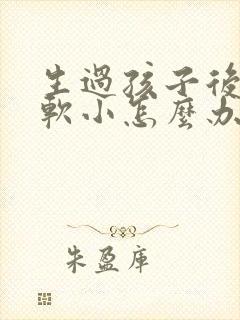 生過孩子後
軟小怎麼办
朱盈庫